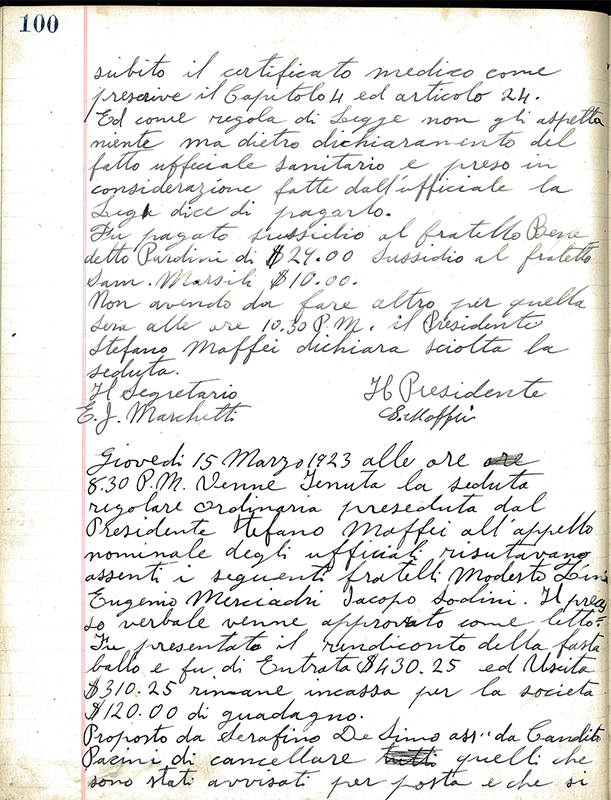 100
subito il certificato medico come
prescrive il Capitolo 4 ed articolo 24.
Ed come regola di Legge non gli aspetta
niente ma dietro dichiaramento del
fatto ufficiale sanitario e preso in
considerazione fatte dall'ufficiale la
Lega dice di pagarlo.
Fu pagato sussidio al fratello Bene
detto Pardini di $29.00 Sussidio al fratello
Sam. Marsili $10.00.
Non avendo da fare altro per quella
sera alle ore 10.30 P.M. il Presidente
Stefano Maffei dichiara sciolta la
seduta.
Il Segretario Il Presidente
E. J. Marchetti S. Maffei
Giovedi 15 Marzo 1923 alle ore ore
8.30 P.M. Venne Tenuta la seduta
regolare ordinaria preseduta dal
Presidente Stefano Maffei all'appello
nominale degli ufficiali risutavano
assenti i seguenti fratelli Modesto
Eugenio Merciadri Jacopo Sodini. Il preces
so verbale venne approvato come letto=
Fu presentato il rendiconto della fasta
ballo e fu di Entrata $430.25 ed Uscita
$310.25 rimane incassa per la societa
$120.00 di guadagno.
Proposto da Serafino De Simo ass" da Candito
Pacini di cancellare tutti quelli che
sono stati avvisati per posta e che si